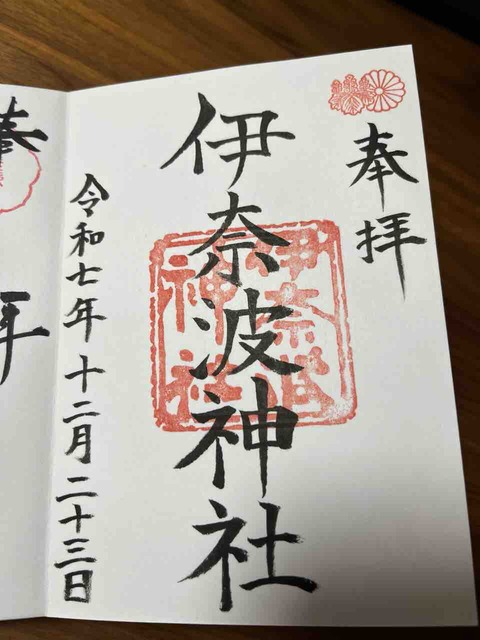 奉拝
伊奈波神社
伊奈波
神社
令和七年十二月二十三日
奉
拝